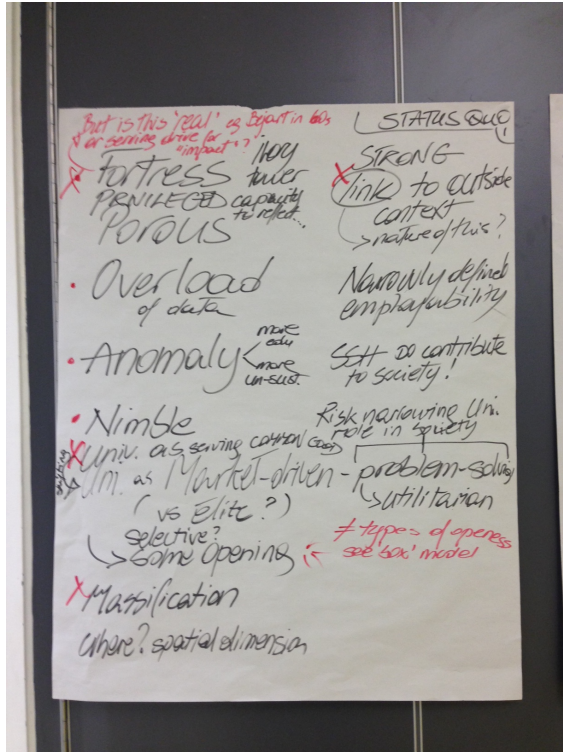 But is this 'real' eg Bejart in 60s
or serving drive for
"impact"?
STATUS QUO!
Fortress
ivory
tower
PRIVILEGED capacity
to reflect...
Porous
STRONG
link to outside
context
nature of this?
• Overload
of data
Narrowly defined
employability
• Anomaly
more
edu
more
un-sust.
SSH DO contribute
to society!
• Nimble
Risk narrowing Uni.
role in society
Univ. as serving common good
Uni. as Market-driven - problem-solving
(vs Elite?)
utilitarian
selective?
Some opening
≠ types of openess
see 'box' model
Massification
Where? spatial dimension